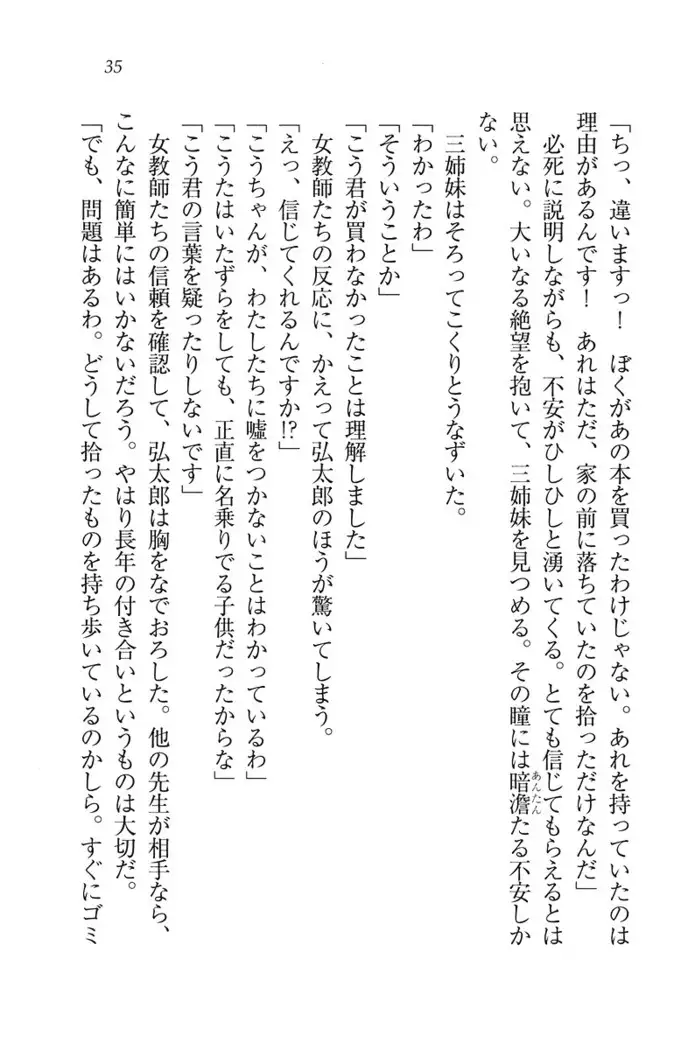 35
「ちっ、違いますっ！　ぼくがあの本を買ったわけじゃない。あれを持っていたのは
理由があるんです！　あれはただ、家の前に落ちていたのを拾っただけなんだ」
　必死に説明しながらも、不安がひしひしと湧いてくる。とても信じてもらえるとは
思えない。大いなる絶望を抱いて、三姉妹を見つめる。その瞳には暗澹たる不安しか
あんたん
ない。
　三姉妹はそろってこくりとうなずいた。
「わかったわ」
「そういうことか」
「こう君が買わなかったことは理解しました」
　女教師たちの反応に、かえって弘太郎のほうが驚いてしまう。
「えっ、信じてくれるんですか!?」
「こうちゃんが、わたしたちに嘘をつかないことはわかっているわ」
「こうたはいたずらをしても、正直に名乗りでる子供だったからな」
「こう君の言葉を疑ったりしないです」
　女教師たちの信頼を確認して、弘太郎は胸をなでおろした。他の先生が相手なら、
こんなに簡単にはいかないだろう。やはり長年の付き合いというものは大切だ。
「でも、問題はあるわ。どうして拾ったものを持ち歩いているのかしら。すぐにゴミ